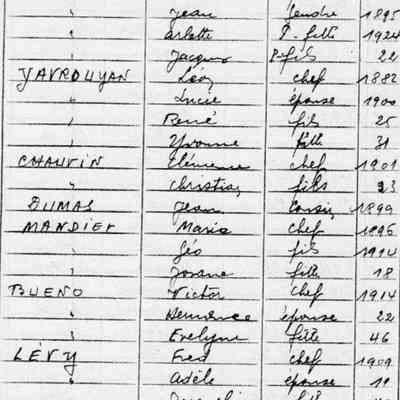 " Jean Gendre 1895
" Arlette P-fille 1924
" Jacques P-fils 22
YAVROUYAN Léon chef 1882
" Lucie épouse 1900
" René fils 25
" Yvonne fille 31
CHAUVIN Clémence chef 1901
" Christian fils 23
DUMAS Jean Cousin 1899
MANDIER Maria chef 1896
" Géo fils 1914
" Josiane fille 18
BUENO Victor chef 1914
" épouse 22
" Evelyne fille 46
LÉVY Fred chef 1909
" Adèle épouse 11